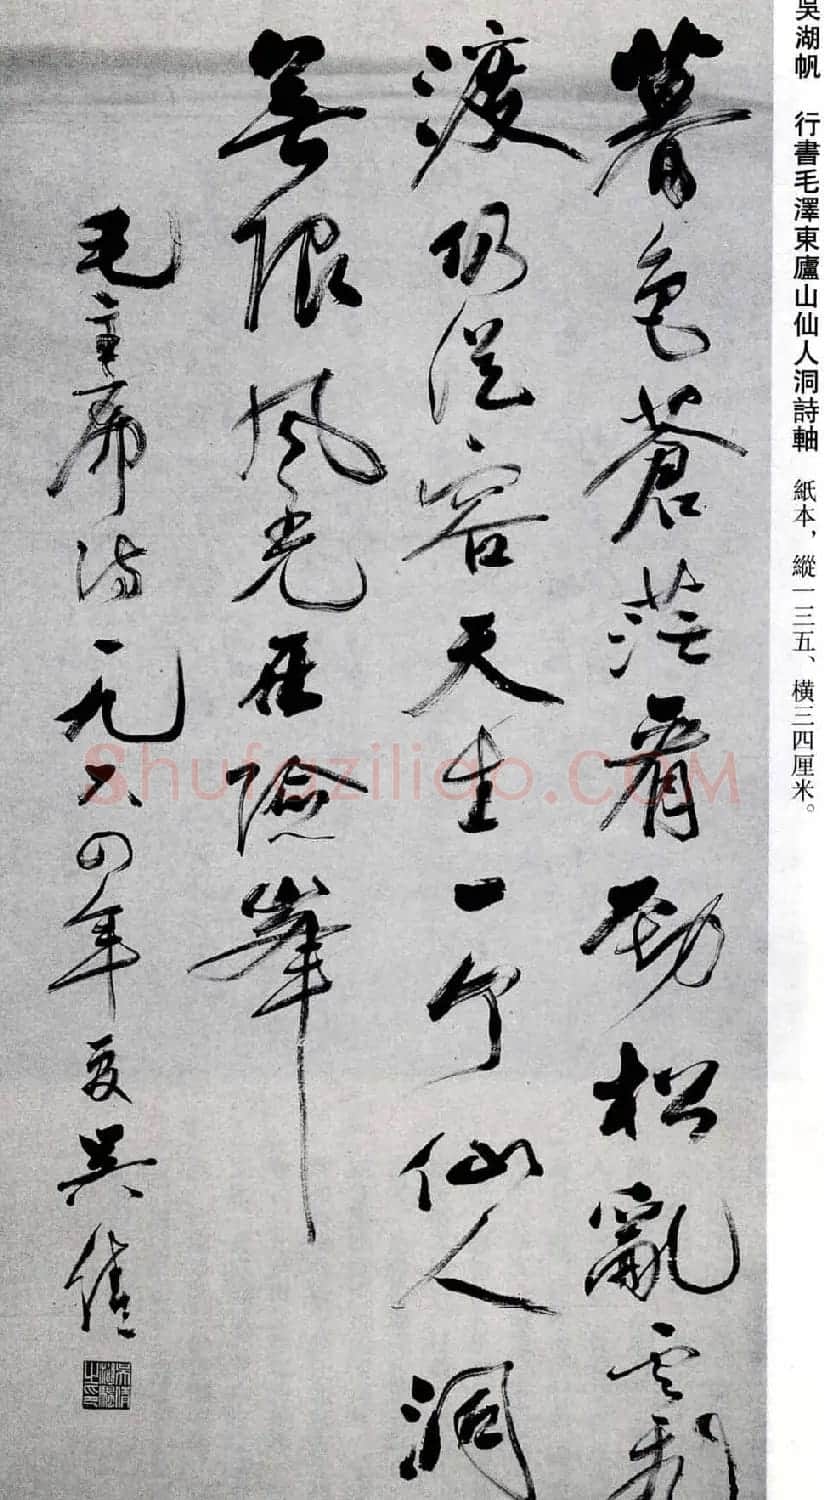 吳湖帆 行書毛澤東廬山仙人洞詩軸 紙本，縱一三五、橫三四厘米。
暮色蒼茫看勁松亂雲飛
渡仍從容天生一个仙人洞
無限风光在險峯
毛主席詩一九六四年夏吳倩
Shufaziliao.COM